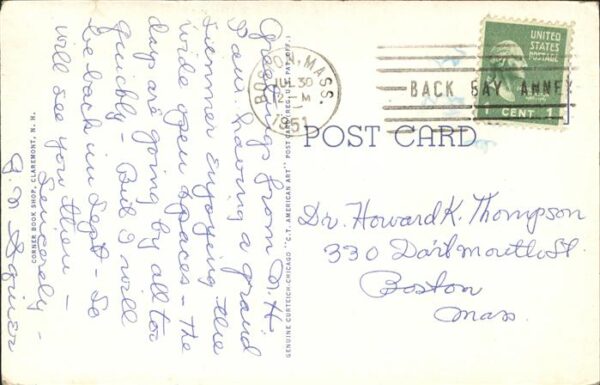 Greetings from N.H.
I am having a grand
summer enjoying the
wide open spaces - the
days are going by all too
quickly - But I will
be back in Sept - So
will see you then -
Sincerely -
CORNER BOOK SHOP, CLAREMONT, N. H.
GENUINE CURTEICH-CHICAGO "C.T. AMERICAN ART" POST CARD (REG. U.S. PAT. OFF.)
BOSTON, MASS.
JUL 30
12 M
1951
BACK BAY ANNEX
UNITED
STATES
POSTAGE
1 CENT 1
POST CARD
Dr. Howard K. Thompson
330 Dartmouth St.
Boston
Mass.